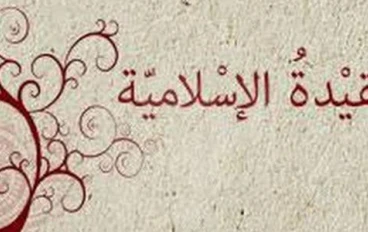 قيْدةُ الإسْلاميّة